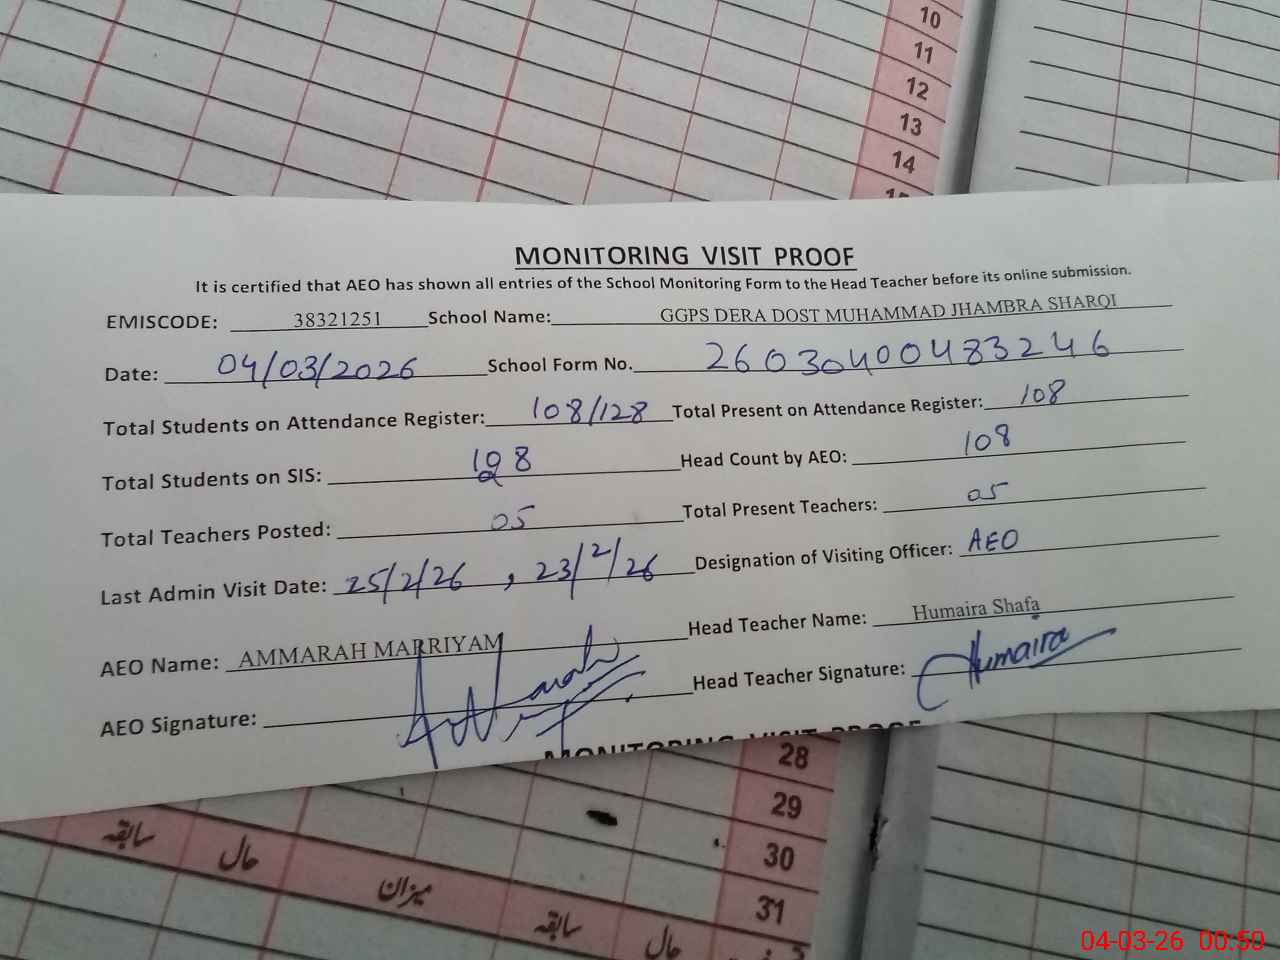 10
11
12
13
14
MONITORING VISIT PROOF
It is certified that AEO has shown all entries of the School Monitoring Form to the Head Teacher before its online submission.
EMISCODE: 38321251 School Name: GGPS DERA DOST MUHAMMAD JHAMBRA SHARQI
Date: 04/03/2026 School Form No. 260304000483246
Total Students on Attendance Register: 108/128 Total Present on Attendance Register: 108
Total Students on SIS: 128 Head Count by AEO: 108
Total Teachers Posted: 05 Total Present Teachers: 05
Last Admin Visit Date: 25/2/26 , 23/2/26 Designation of Visiting Officer: AEO
AEO Name: AMMARAH MARRIYAM Head Teacher Name: Humaira Shafa
AEO Signature: Head Teacher Signature: Humaira
MONITORING VISIT PROOF
28
29
30
31
سابقہ حال میزان سابقہ حال
04-03-26 00:50